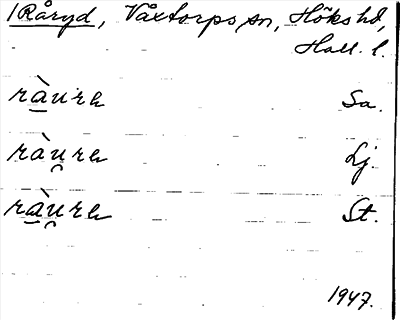 1 Råryd, Våxtorps sn, Höks hd,
Hall. l.
ràu̇re Sa.
ràu̯re Lj.
ràu̯re St.
1947.